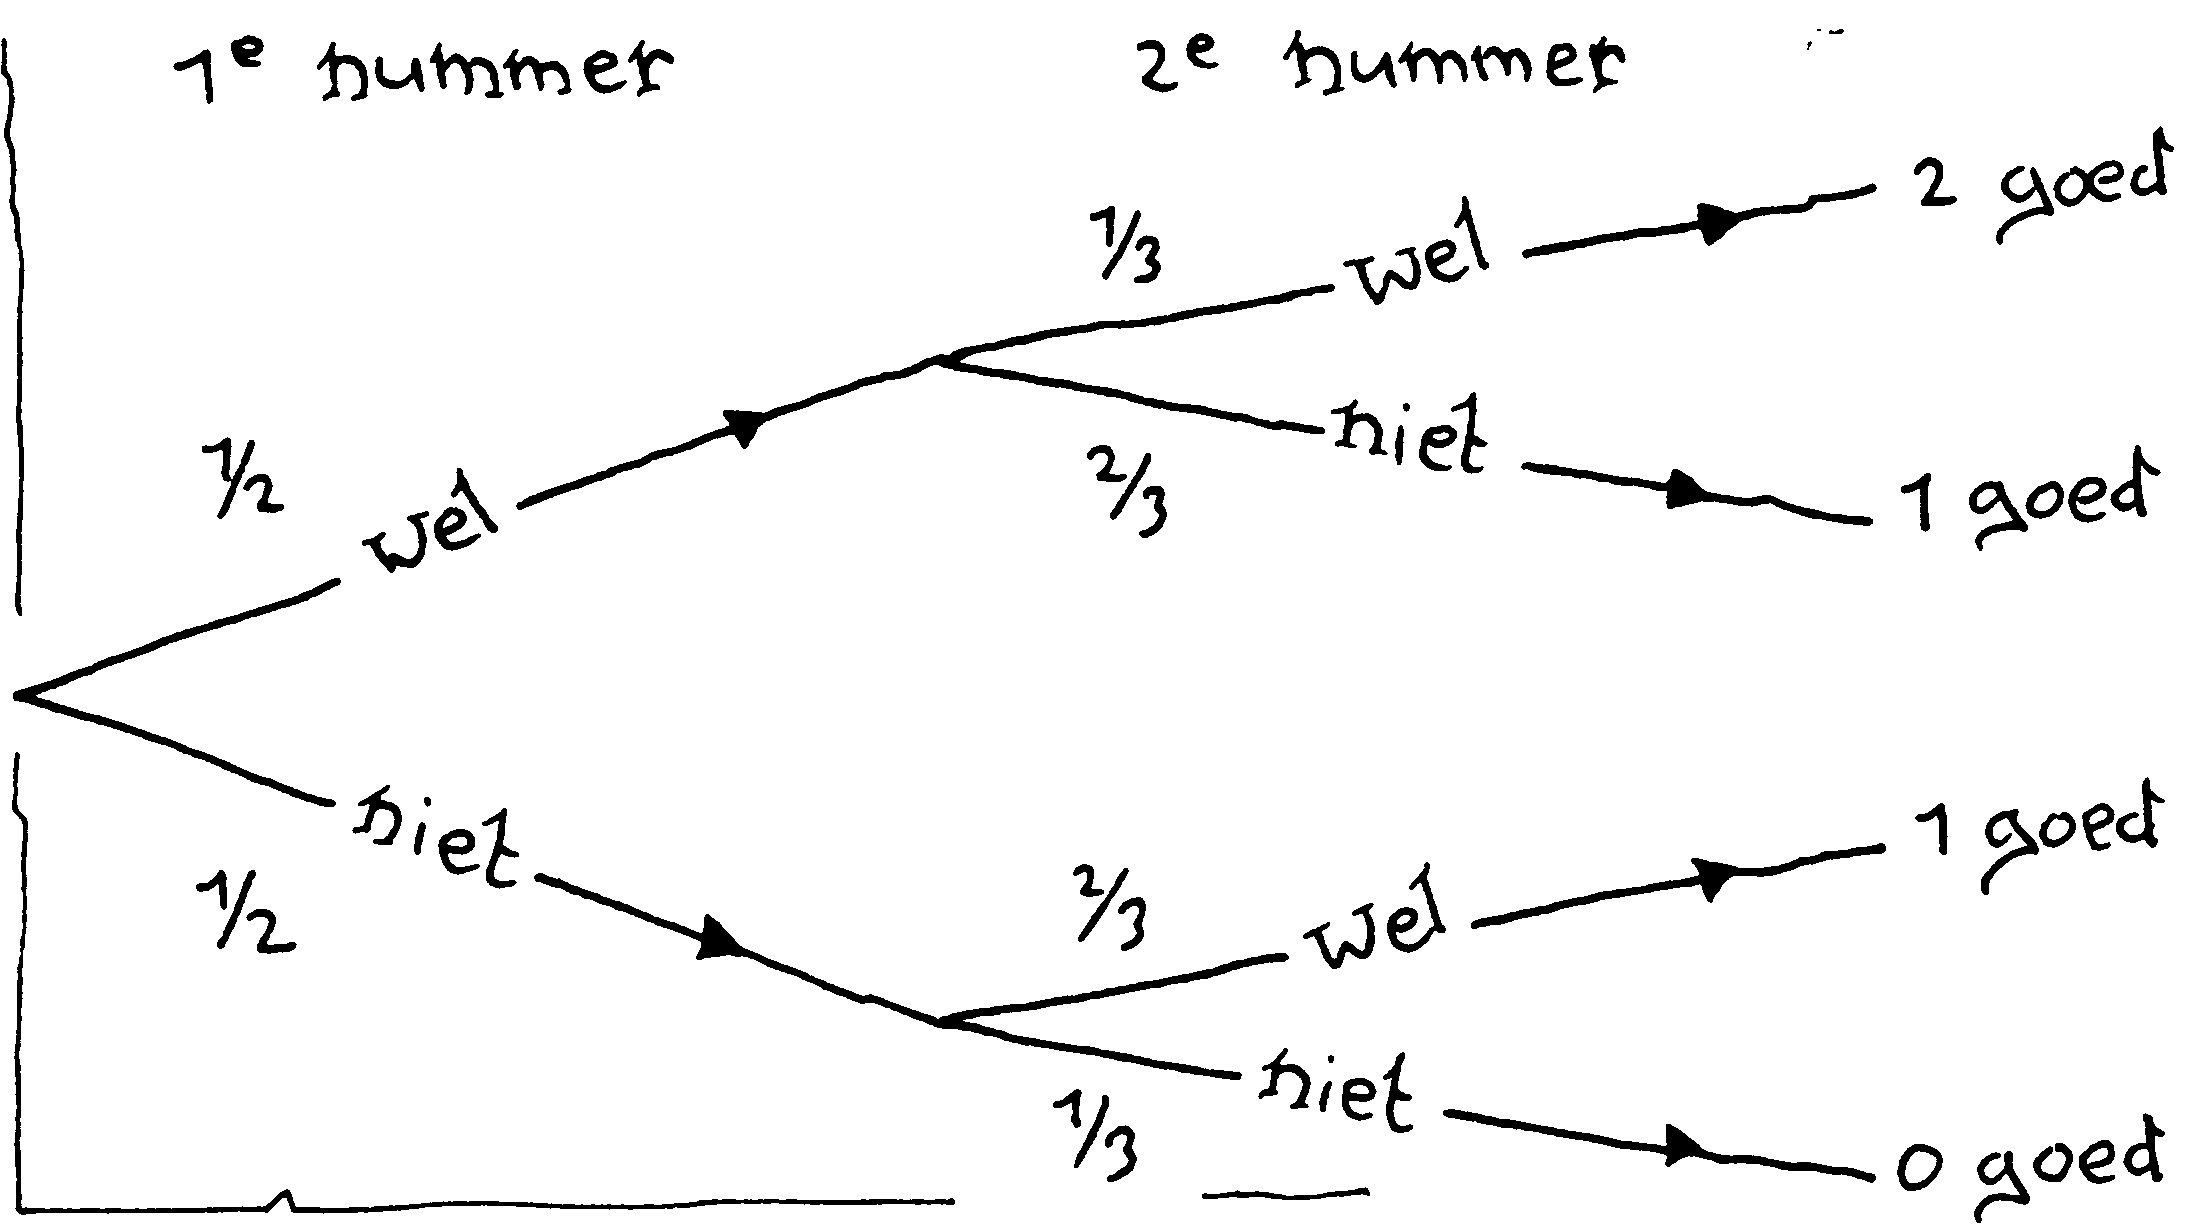 1e nummer 2e nummer
1/3 wel 2 goed
1/2 wel
2/3 niet 1 goed
1/2 niet
2/3 wel 1 goed
1/3 niet 0 goed